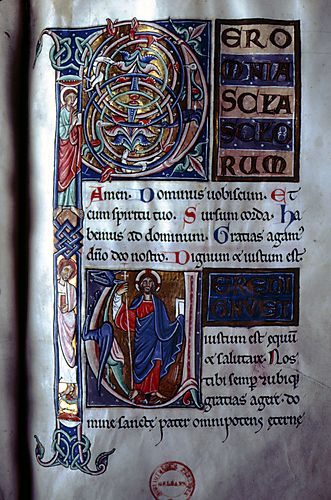 P ERO
MNIA
SCLA
SCLO
RUM
Amen. Dominus uobiscum. Et
cum spiritu tuo. Sursum corda. Ha
bemus ad dominum. Gratias agam
dño deo nostro. Dignum & iustum est
V ERE DI
GNU ET
iustum est equũ
& salutare. Nos
tibi semp & ubiq;
gratias agere. do
mine sancte pater omnipotens eterne